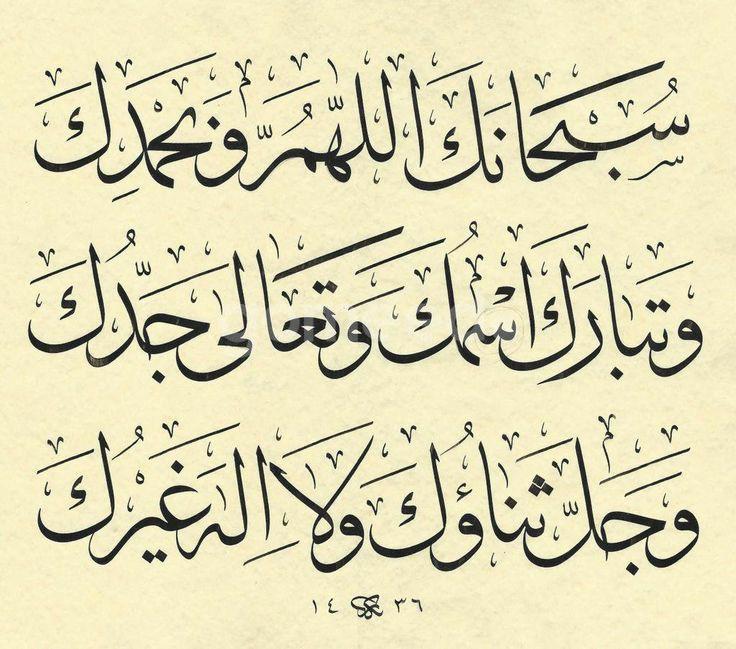 سُبْحَانَكَ اللّٰهُمَّ وَبِحَمْدِكَ
وَتَبَارَكَ اسْمُكَ وَتَعَالٰى جَدُّكَ
وَجَلَّ ثَنَاؤُكَ وَلَا اِلٰهَ غَيْرُكَ
١٤ ٣٦